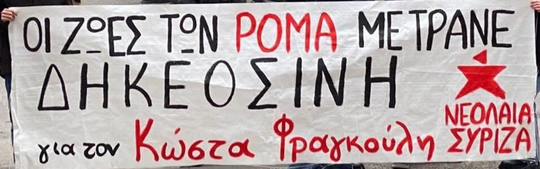 ΟΙ ΖΩΕΣ ΤΩΝ ΡΟΜΑ ΜΕΤΡΑΝΕ
ΔΗΚΕΟΣΙΝΗ
για τον Κώστα Φραγκούλη
ΝΕΟΛΑΙΑ
ΣΥΡΙΖΑ